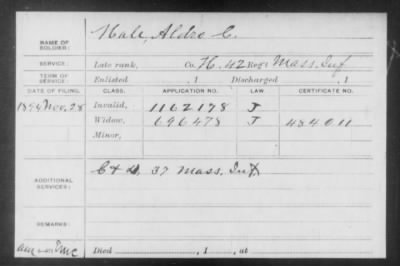 NAME OF SOLDIER: Hale, Aldro C.
SERVICE: Late rank, Co. H, 42 Reg't Mass. Inf
TERM OF SERVICE: Enlisted , 1 Discharged , 1
DATE OF FILING. CLASS. APPLICATION NO. LAW. CERTIFICATE NO.
1894 Nov. 28 Invalid, 1162178 J
Widow, 696478 J 484011
Minor,
ADDITIONAL SERVICES: 37 Mass. Inf.
REMARKS:
Died , 1 , at